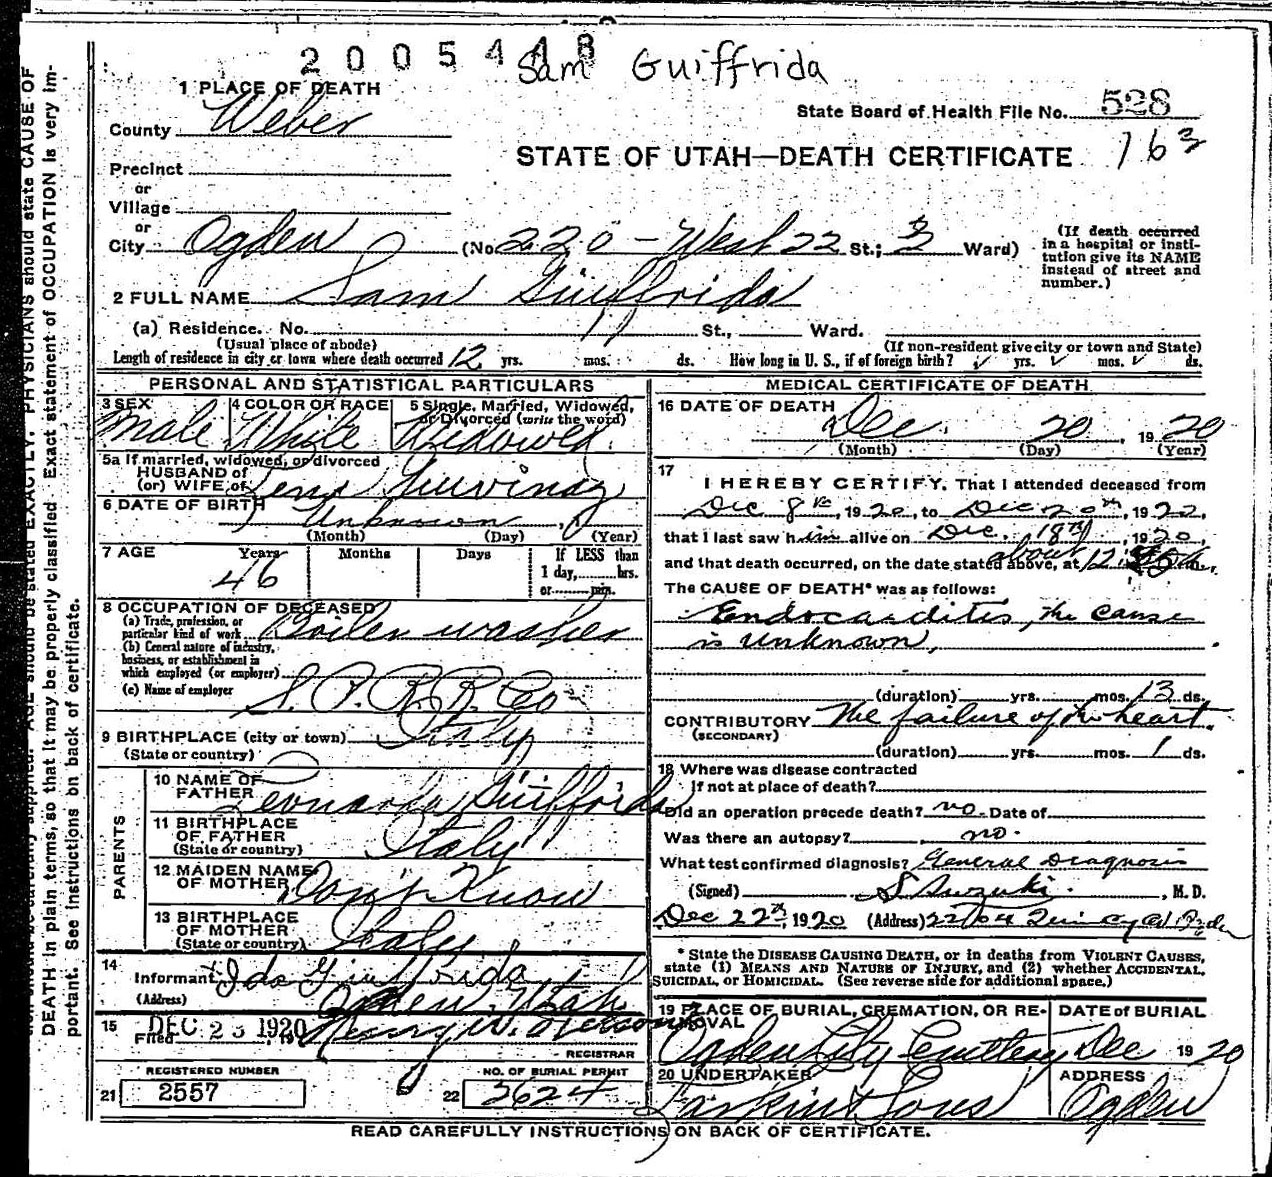 2005448
Sam Guiffrida
1 PLACE OF DEATH
County Weber
State Board of Health File No. 528
163
STATE OF UTAH—DEATH CERTIFICATE
Precinct
or
Village
or
City Ogden (No. 220 - West 22 St.; 3 Ward)
(If death occurred in a hospital or institution give its NAME instead of street and number.)
2 FULL NAME Sam Guiffrida
(a) Residence. No. 11 St., Ward.
(Usual place of abode) (If non-resident give city or town and State)
Length of residence in city or town where death occurred 12 yrs. mos. ds. How long in U. S., if of foreign birth? yrs. mos. ds.
PERSONAL AND STATISTICAL PARTICULARS
3 SEX Male
4 COLOR OR RACE White
5 Single, Married, Widowed, or Divorced (write the word) Widowed.
5a If married, widowed, or divorced
HUSBAND of
(or) WIFE of
6 DATE OF BIRTH Unknown
(Month) (Day) (Year)
7 AGE Years Months Days If LESS than
46 1 day, hrs.
or min.
8 OCCUPATION OF DECEASED
(a) Trade, profession, or
particular kind of work Boiler washer
(b) General nature of industry,
business, or establishment in
which employed (or employer)
(c) Name of employer S. P. R. R. Co
9 BIRTHPLACE (city or town) Italy
(State or country)
PARENTS
10 NAME OF FATHER Leonardo Guiffrida
11 BIRTHPLACE OF FATHER Italy
(State or country)
12 MAIDEN NAME OF MOTHER Don't Know
13 BIRTHPLACE OF MOTHER Italy
(State or country)
14
Informant Ida Giuffrida
(Address) Ogden, Utah
15 Filed DEC 23 1920, 19 Henry W.
REGISTRAR
REGISTERED NUMBER NO. OF BURIAL PERMIT
21 2557 22 3624
MEDICAL CERTIFICATE OF DEATH
16 DATE OF DEATH
Dec. 20, 1920
(Month) (Day) (Year)
17
I HEREBY CERTIFY, That I attended deceased from
Dec 8th, 1920, to Dec 20th, 1920,
that I last saw him alive on Dec. 18th, 1920,
and that death occurred, on the date stated above, at about 12
The CAUSE OF DEATH* was as follows:
Endocarditis, the cause
is unknown,
(duration) yrs. mos. 13 ds.
CONTRIBUTORY The failure of the heart.
(SECONDARY)
(duration) yrs. mos. 1 ds.
18 Where was disease contracted
If not at place of death?
Did an operation precede death? no. Date of
Was there an autopsy? no.
What test confirmed diagnosis? General Diagnosis
(Signed) S Suzuki, M. D.
Dec 22th, 1920 (Address)
* State the DISEASE CAUSING DEATH, or in deaths from VIOLENT CAUSES,
state (1) MEANS AND NATURE OF INJURY, and (2) whether ACCIDENTAL,
SUICIDAL, or HOMICIDAL. (See reverse side for additional space.)
19 PLACE OF BURIAL, CREMATION, OR REMOVAL DATE of BURIAL
Ogden City Cemetery Dec 1920
20 UNDERTAKER ADDRESS
Larkin & Sons Ogden
READ CAREFULLY INSTRUCTIONS ON BACK OF CERTIFICATE.
PHYSICIANS should state CAUSE OF
DEATH in plain terms, so that it may be properly classified. Exact statement of OCCUPATION is very im-
portant. See instructions on back of certificate.